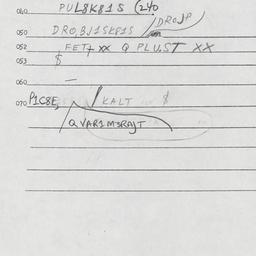 040 PUL8K81S (240
050 DROBJ1SKP1S /DROJP
052 FET+ xx Q PLUST XX
053 $
060 —
070 P1C8E, /KALT $
QVAR1M3RAJT